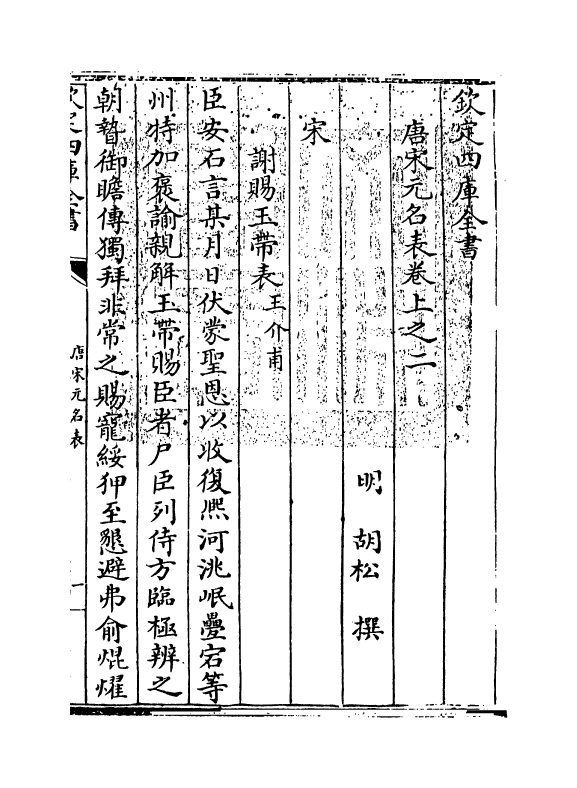 欽定四庫全書
唐宋元名表卷上之二
明 胡松 撰
宋
謝賜玉帶表 王介甫
臣安石言某月日伏蒙聖恩以收復熈河洮岷疊宕等
州特加褒諭親解玉帶賜臣者尸臣列侍方臨極辨之
朝瞽御瞻傳獨拜非常之賜寵綏狎至懇避弗俞焜燿
欽定四庫全書
唐宋元名表
一